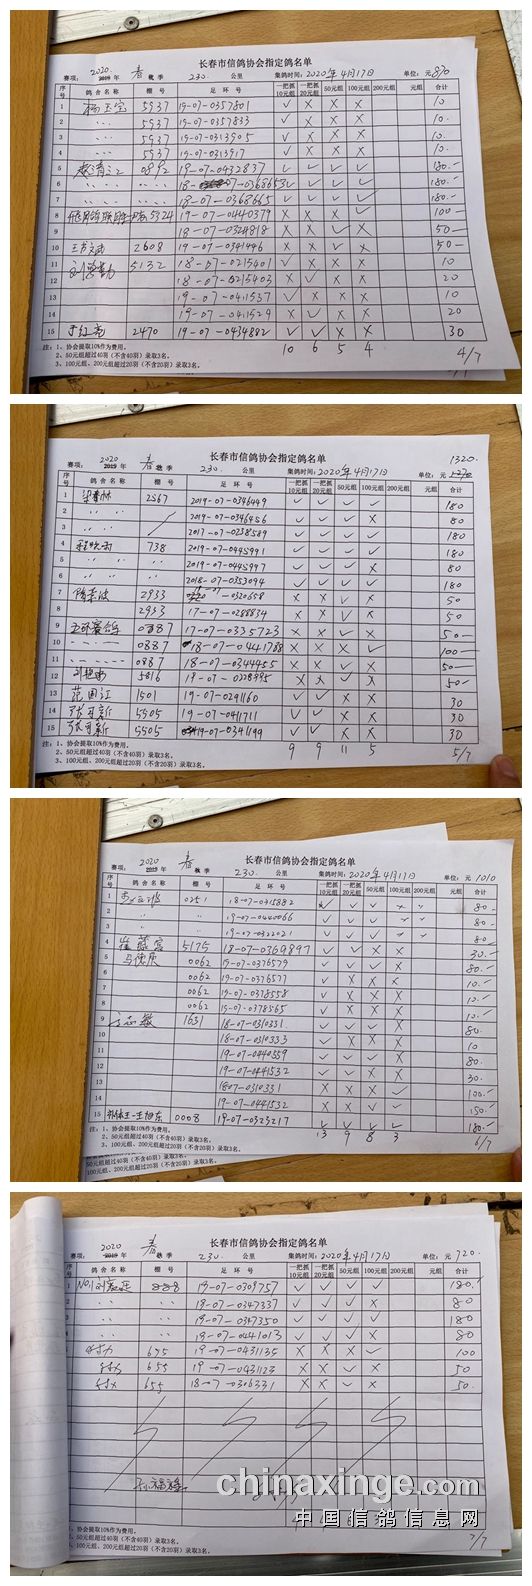 长春市信鸽协会指定鸽名单
赛项: 2020 2019 年 春 秋季 230. 公里 集鸽时间: 2020年4月17日 单位: 元 810
序号 鸽舍名称 棚号 足环号 一把抓10元组 一把抓20元组 50元组 100元组 200元组 元组 合计
1 杨玉宝 5937 19-07-0357801 ✓ X X X 10.
2 〃 5937 19-07-0357833 ✓ X X X 10.
3 〃 5937 19-07-0313905 ✓ X X X 10.
4 5937 19-07-0313917 ✓ X X X 10.
5 0892 19-07-0432837 ✓ ✓ ✓ ✓ 180.-
6 -07-0368653 ✓ ✓ ✓ ✓ 180.-
7 18-07-0368665 ✓ ✓ ✓ ✓ 180.-
8 5324 19-07-0440379 X X X ✓ 100-
9 18-07-0324818 X X ✓ X 50-
10 2608 19-07-0341446 X X ✓ X 50-
11 5132 18-07-0215401 ✓ X X X 10
12 18-07-0215403 X ✓ X X 20
13 19-07-0411537 ✓ X X X 10
14 19-07-0411529 X ✓ X X 20
15 于红亮 2470 19-07-0434882 ✓ ✓ X X 30
注: 1、协会提取10%作为费用。
2、50元组超过40羽(不含40羽)录取3名。
3、100元组、200元组超过20羽(不含20羽)录取3名。
10 6 5 4 4/7
长春市信鸽协会指定鸽名单
赛项: 2020 2019 年 春 秋季 230. 公里 集鸽时间: 2020年4月17日 单位: 元 1320.
序号 鸽舍名称 棚号 足环号 一把抓10元组 一把抓20元组 50元组 100元组 200元组 元组 合计
1 2567 2019-07-0346449 ✓ ✓ ✓ ✓ 180
2 〃 2019-07-0346456 ✓ ✓ ✓ X 80
3 〃 2017-07-0238589 ✓ ✓ ✓ ✓ 180
4 738 2019-07-0445991 ✓ ✓ ✓ ✓ 180
5 〃 2019-07-0445997 ✓ ✓ ✓ X 80
6 〃 2018-07-0353094 ✓ ✓ ✓ ✓ 180
7 2933 -07-0320658 X X ✓ X 50
8 2933 17-07-0288834 X X ✓ X 50
9 五环赛鸽 0887 17-07-0335723 X X ✓ X 50-
10 0887 18-07-0441788 X X X ✓ 100-
11 0887 18-07-0344455 X X ✓ X 50-
12 5816 19-07-0228995 X X ✓ X 50-
13 范国江 1501 19-07-0291160 ✓ ✓ X X 30
14 张可新 5505 19-07-0411711 ✓ ✓ X X 30
15 张可新 5505 19-07-0341199 ✓ ✓ X X 30
注: 1、协会提取10%作为费用。
2、50元组超过40羽(不含40羽)录取3名。
3、100元组、200元组超过20羽(不含20羽)录取3名。
9 9 11 5 5/7
长春市信鸽协会指定鸽名单
赛项: 2020 2019 年 春 秋季 230. 公里 集鸽时间: 2020年4月17日 单位: 元 1010
序号 鸽舍名称 棚号 足环号 一把抓10元组 一把抓20元组 50元组 100元组 200元组 元组 合计
1 0251 18-07-0315882 80.-
2 〃 19-07-0440066 80.-
3 〃 19-07-0322021 80.-
4 5175 18-07-0369897 ✓ ✓ X X 30.-
5 马俊庚 0062 19-07-0376579 ✓ ✓ ✓ X 80.-
0062 19-07-0376577 ✓ X X X 10.-
0062 19-07-0378558 ✓ X X X 10.-
0062 19-07-0378565 ✓ X X X 10.-
9 1631 18-07-0310331 ✓ ✓ ✓ X 80.
18-07-0310333 ✓ X X X 10
19-07-0440559 ✓ ✓ ✓ X 80.
19-07-0441532 ✓ ✓ X X 30.
1807-0310331 X X X ✓ 100.-
14 19-07-0441532 X X ✓ ✓ 150.-
15 0008 19-07-0323217 ✓ ✓ ✓ ✓ 180.-
注: 1、协会提取10%作为费用。
2、50元组超过40羽(不含40羽)录取3名。
3、100元组、200元组超过20羽(不含20羽)录取3名。
13 9 8 3 6/7
长春市信鸽协会指定鸽名单
赛项: 2020 2019 年 春 秋季 230. 公里 集鸽时间: 2020年4月17日 单位: 元 720.
序号 鸽舍名称 棚号 足环号 一把抓10元组 一把抓20元组 50元组 100元组 200元组 元组 合计
1 888 19-07-0309757 ✓ ✓ ✓ ✓ 180.-
〃 19-07-0347337 ✓ ✓ ✓ X 80
〃 19-07-0347350 ✓ ✓ ✓ ✓ 180
〃 19-07-0441013 ✓ ✓ ✓ X 80
655 19-07-0431135 X X X ✓ 100
655 19-07-0431123 X X ✓ X 50
655 18-07-0306331 X X ✓ X 50.
孙福祥
1、协会提取10%作为费用。
2、50元组超过40羽(不含40羽)录取3名。
3、100元组、200元组超过20羽(不含20羽)录取3名。
7/7
chinaxinge.com
中国信鸽信息网